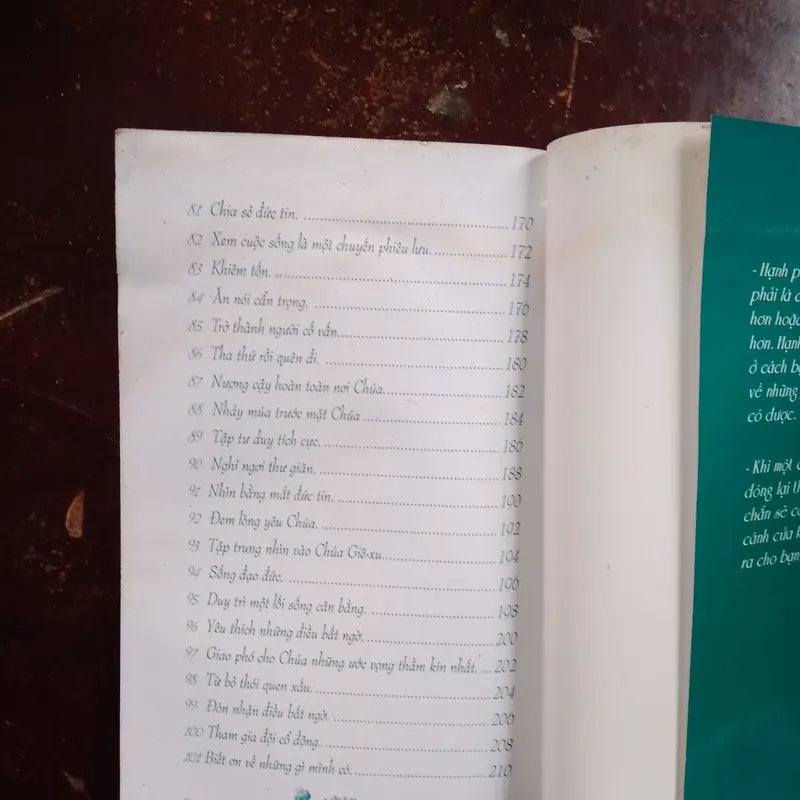 81 Chia sẻ đức tin. 170
82 Xem cuộc sống là một chuyến phiêu lưu. 172
83 Khiêm tốn. 174
84 Ăn nói cẩn trọng. 176
85 Trở thành người cố vấn. 178
86 Tha thứ rồi quên đi. 180
87 Nương cậy hoàn toàn nơi Chúa. 182
88 Nhảy múa trước mặt Chúa 184
89 Tập tư duy tích cực. 186
90 Nghỉ ngơi thư giãn. 188
91 Nhìn bằng mắt đức tin. 190
92 Đem lòng yêu Chúa. 192
93 Tập trung nhìn vào Chúa Giê-xu. 194
94 Sống đạo đức. 196
95 Duy trì một lối sống cân bằng. 198
96 Yêu thích những điều bất ngờ. 200
97 Giao phó cho Chúa những ước vọng thầm kín nhất. 202
98 Từ bỏ thói quen xấu. 204
99 Đón nhận điều bất ngờ. 206
100 Tham gia đội cổ động. 208
101 Biết ơn về những gì mình có. 210
- Hạnh
phải là
hơn hoặc
hơn. Hạnh
ở cách
về những
có được.
- Khi một
đóng lại
chắn sẽ
cánh cửa
ra cho bạn